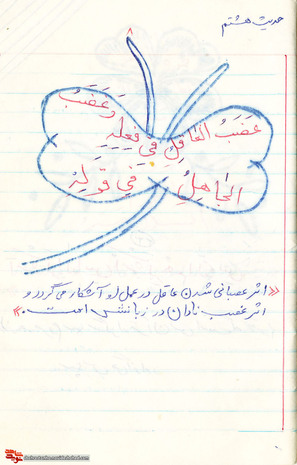 حدیث هشتم
۸
غَضَبُ العاقِلِ في فِعلِهِ وَ غَضَبُ
الجاهِلِ في قَولِهِ
«اثر عصبانی شدن عاقل در عمل او آشکار می‌گردد و
اثر غضب نادان در زبانش است.»